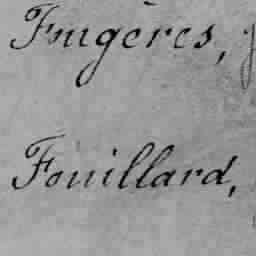 Fougères,
Fouillard,